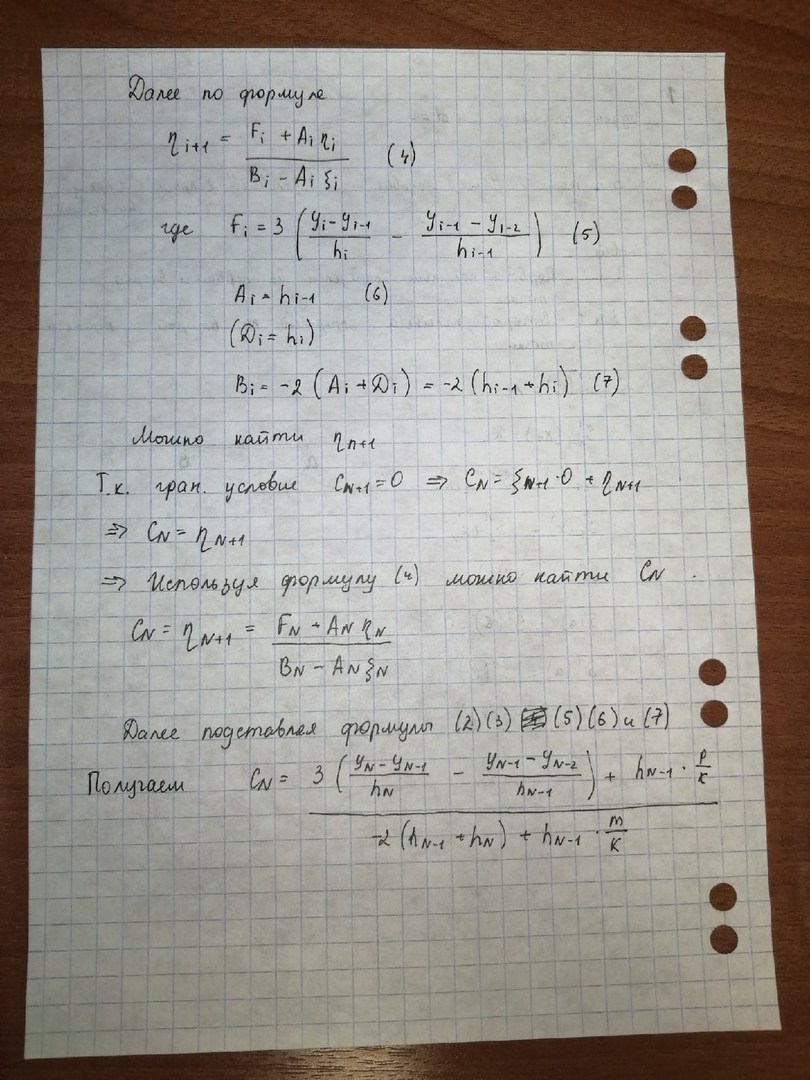 Далее по формуле
η_{i+1} = \frac{F_i + A_i η_i}{B_i - A_i ξ_i} (4)
где F_i = 3 \left( \frac{y_i - y_{i-1}}{h_i} - \frac{y_{i-1} - y_{i-2}}{h_{i-1}} \right) (5)
A_i = h_{i-1} (6)
(D_i = h_i)
B_i = -2 (A_i + D_i) = -2 (h_{i-1} + h_i) (7)
Можно найти η_{n+1}
Т.к. гран. условие C_{N+1} = 0 ⇒ C_N = ξ_{N+1} · 0 + η_{N+1}
⇒ C_N = η_{N+1}
⇒ Используя формулу (4) можно найти C_N .
C_N = η_{N+1} = \frac{F_N + A_N η_N}{B_N - A_N ξ_N}
Далее подставляя формулы (2) (3) (5) (6) и (7)
Получаем C_N = \frac{3 \left( \frac{y_N - y_{N-1}}{h_N} - \frac{y_{N-1} - y_{N-2}}{h_{N-1}} \right) + h_{N-1} · \frac{p}{k}}{-2 (h_{N-1} + h_N) + h_{N-1} · \frac{m}{k}}